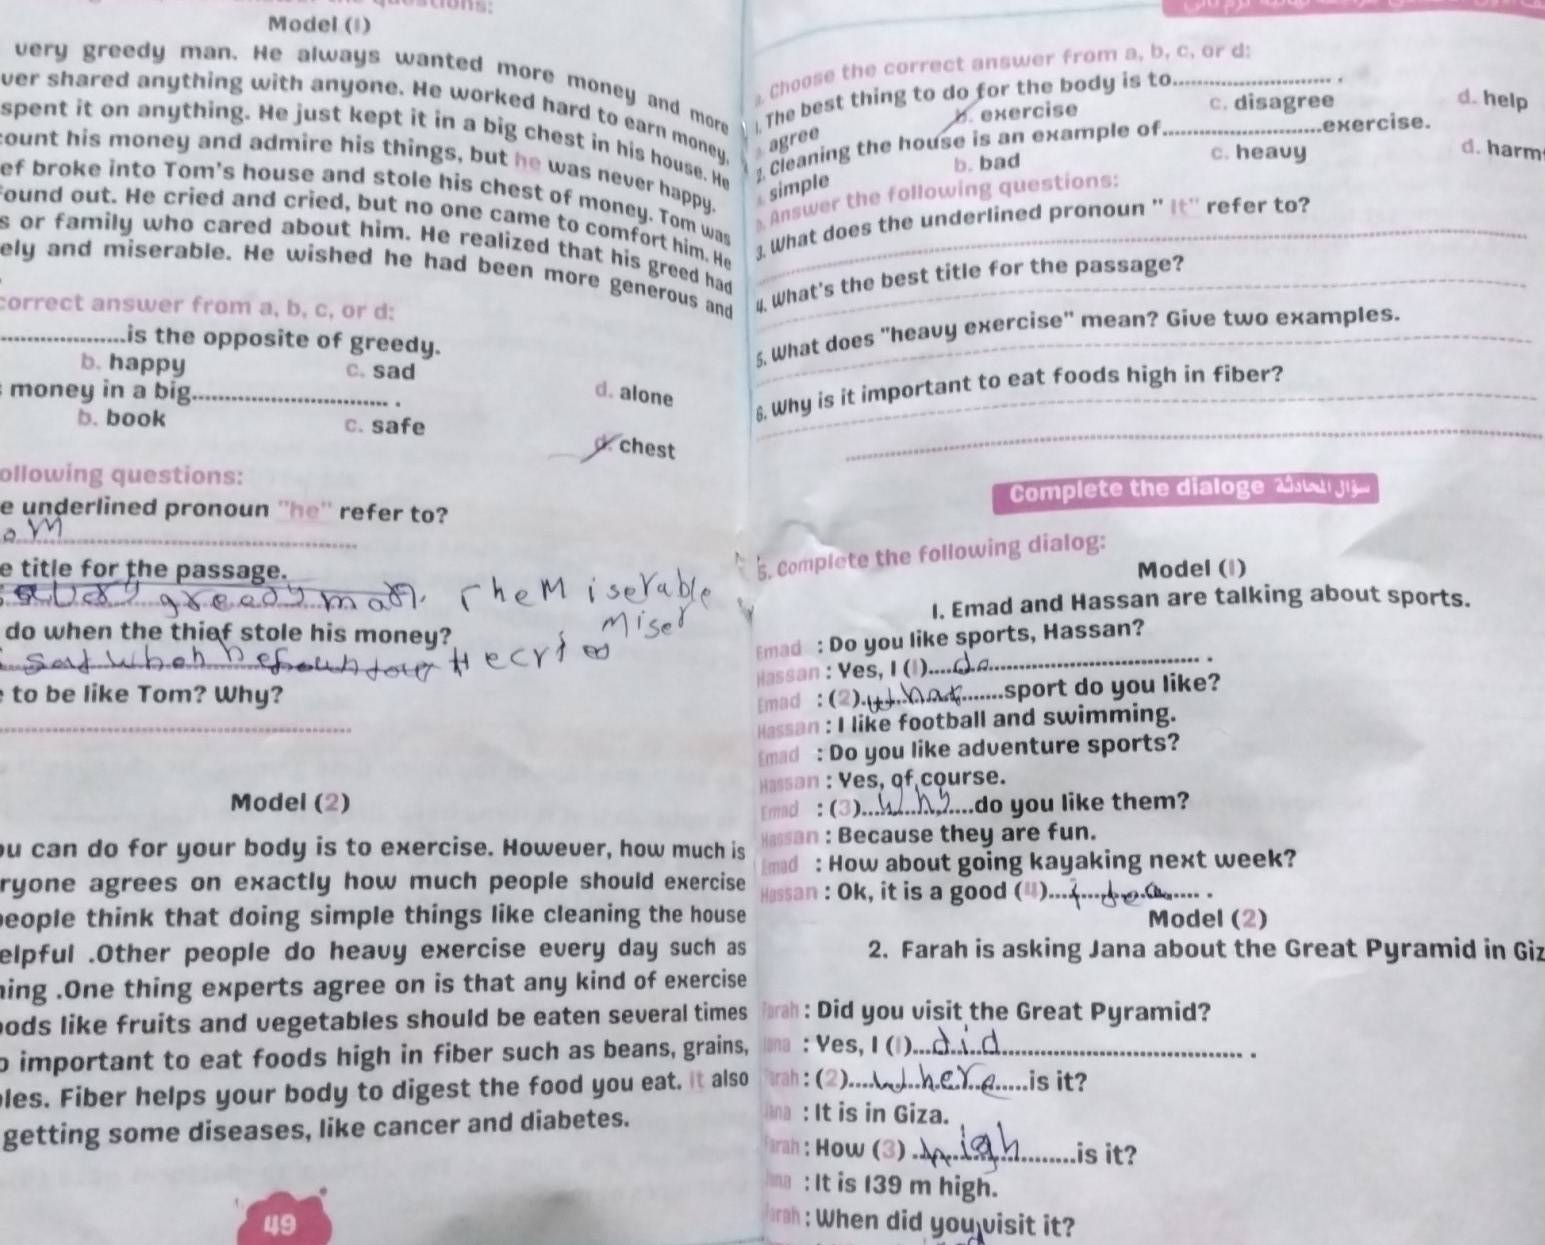 Model (1)
very greedy man. He always wanted more money and more
ver shared anything with anyone. He worked hard to earn money,
spent it on anything. He just kept it in a big chest in his house. He
count his money and admire his things, but he was never happy.
ef broke into Tom's house and stole his chest of money. Tom was
found out. He cried and cried, but no one came to comfort him. He
s or family who cared about him. He realized that his greed had
ely and miserable. He wished he had been more generous and
correct answer from a, b, c, or d:
....................is the opposite of greedy.
b. happy c. sad d. alone
money in a big.............................. .
b. book c. safe d. chest
ollowing questions:
e underlined pronoun "he" refer to?
om
e title for the passage.
greedy man. The Miserable
Miser
do when the thief stole his money?
sad when he found out He cried
to be like Tom? Why?
Model (2)
ou can do for your body is to exercise. However, how much is
ryone agrees on exactly how much people should exercise
people think that doing simple things like cleaning the house
elpful .Other people do heavy exercise every day such as
ning .One thing experts agree on is that any kind of exercise
oods like fruits and vegetables should be eaten several times
o important to eat foods high in fiber such as beans, grains,
les. Fiber helps your body to digest the food you eat. It also
getting some diseases, like cancer and diabetes.
49
a. Choose the correct answer from a, b, c, or d:
1. The best thing to do for the body is to......................... .
a. agree b. exercise c. disagree d. help
2. Cleaning the house is an example of.........................exercise.
a. simple b. bad c. heavy d. harm
b. Answer the following questions:
3. What does the underlined pronoun " It" refer to?
4. What's the best title for the passage?
5. What does "heavy exercise" mean? Give two examples.
6. Why is it important to eat foods high in fiber?
Complete the dialoge سؤال المحادثة
5. Complete the following dialog:
Model (1)
1. Emad and Hassan are talking about sports.
Emad : Do you like sports, Hassan?
Hassan : Yes, I (1)....do.............................. .
Emad : (2).what.......sport do you like?
Hassan : I like football and swimming.
Emad : Do you like adventure sports?
Hassan : Yes, of course.
Emad : (3)...why....do you like them?
Hassan : Because they are fun.
Emad : How about going kayaking next week?
Hassan : Ok, it is a good (4)...idea...... .
Model (2)
2. Farah is asking Jana about the Great Pyramid in Giz
Farah : Did you visit the Great Pyramid?
Jana : Yes, I (1)...did.............................. .
Farah : (2)....where.....is it?
Jana : It is in Giza.
Farah : How (3) .high..........is it?
Jana : It is 139 m high.
Farah : When did you visit it?